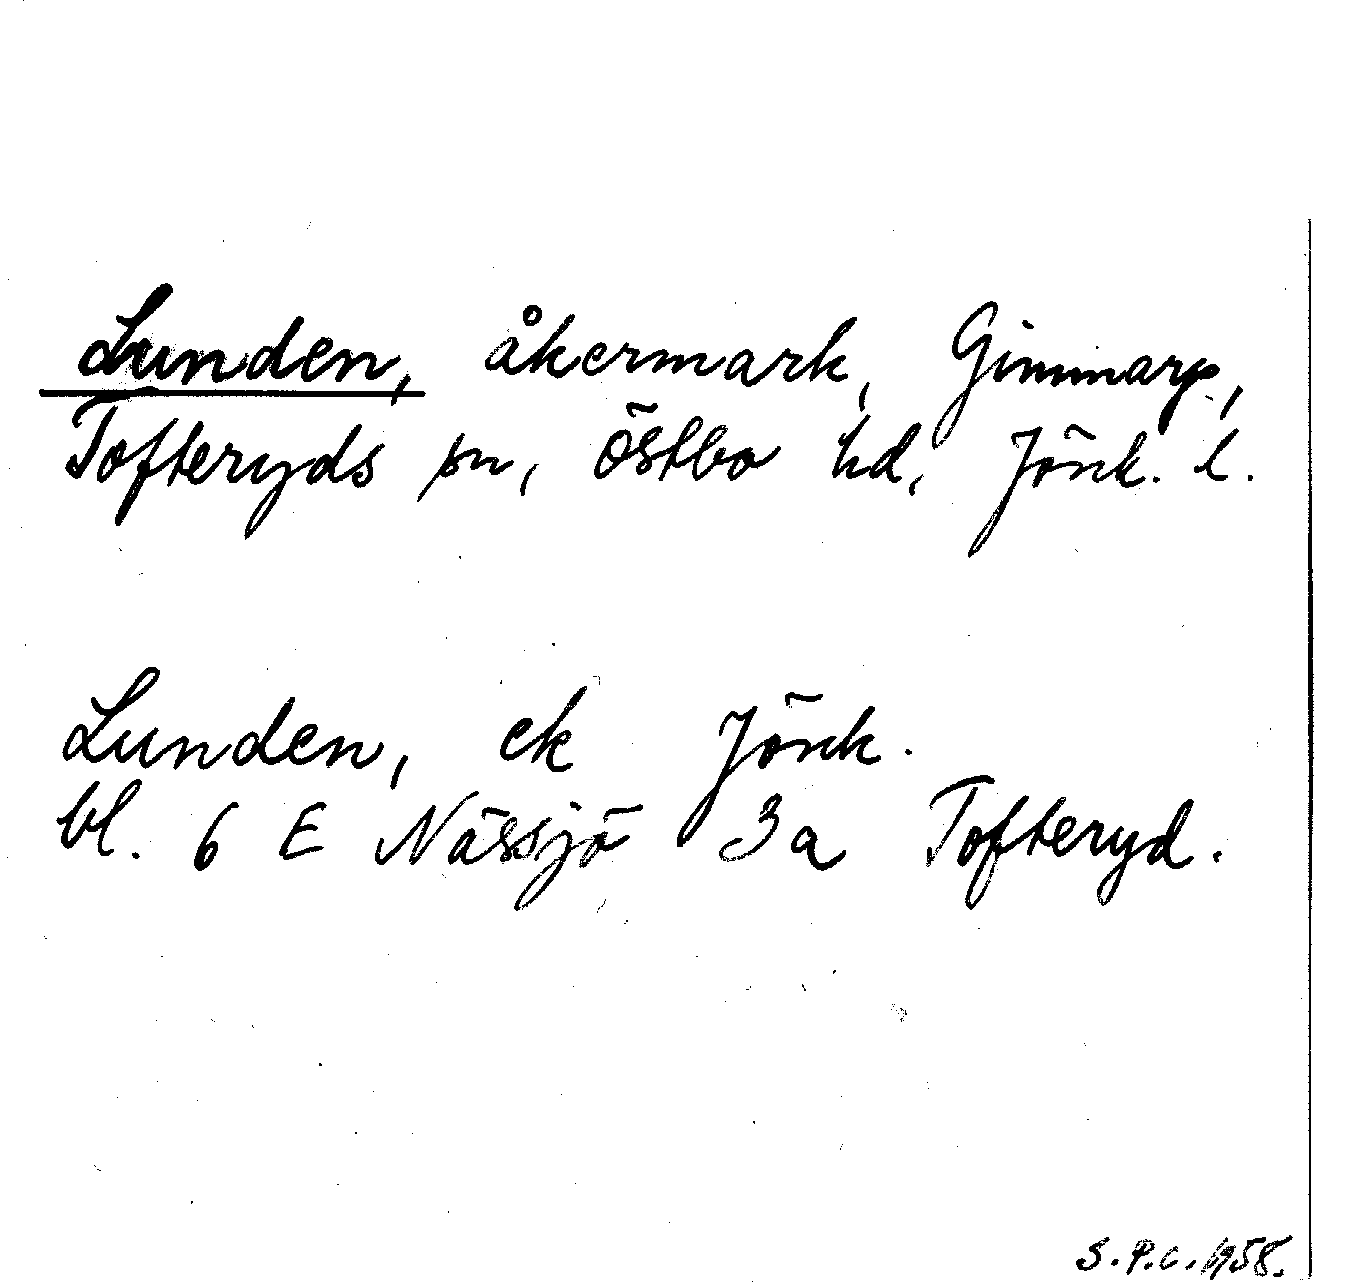 Lunden, åkermark, Gimmarp,
Tofteryds sn, Östbo hd, Jönk. l.
Lunden, ek Jönk.
bl. 6 E Nässjö 3 a Tofteryd.
S.P.C. 1958.